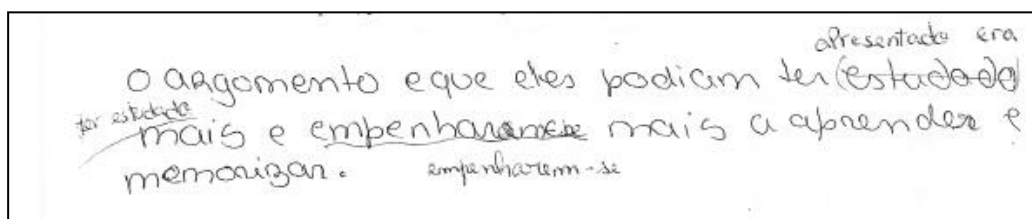 apresentado era
O argomento eque eles podiam ter (estudado)
ter estudado
mais e empenharamse mais a aprender e
memorizar. empenharem-se